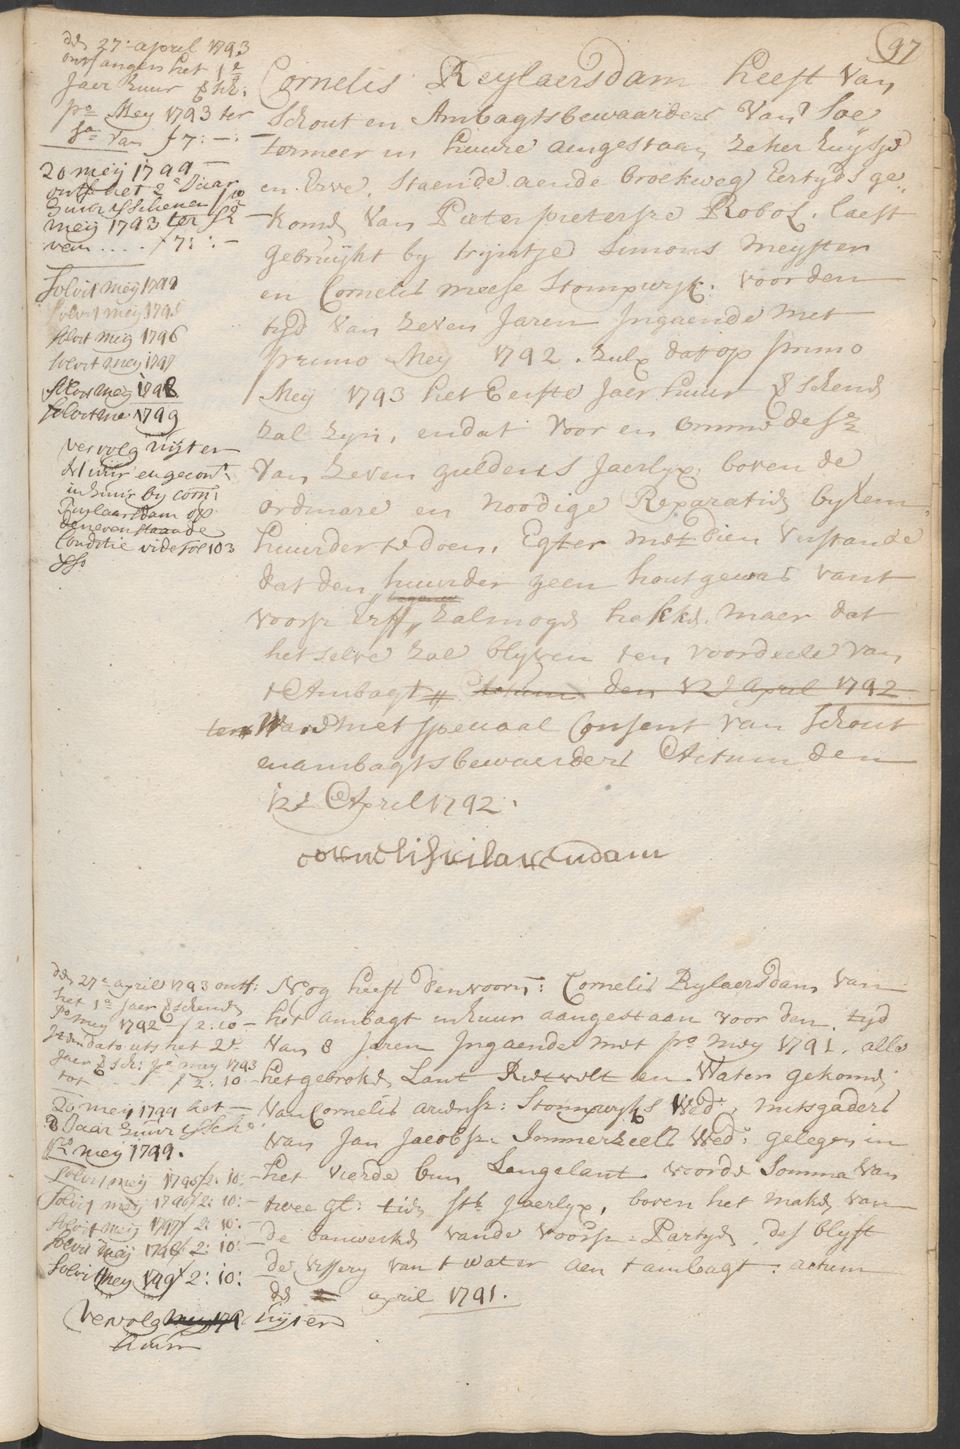 97
den 27: april 1793
ontfangen het 1e
Jaer huur
po Meij 1793 ter
Sa van f 7:-:-
20 meij 1794
ontf het 2e Jaar
huur verschenen po
meij 1793 ter
van .... f 7:-:-
Solvit meij 1794
Solvit meij 1795
Solvit meij 1796
Solvit meij 1797
Solvit meij 1798
Solvit mei 1799
vervolg
d huur en gecont.
in huur by corn:
Ruylaersdam op
de nevenstaande
Conditie vide fol 103
Cornelis Reylaersdam heeft Van
Schout en Ambagtsbewaarders Van Soe
termeer in huure aengestaan zeker huysje
en Erve, Staende aende broekweg Eertyds ge
komen Van Pieter pieterse Robol, laest
gebruijkt by trijntje Simons Meijster
en Cornelis meese Stompwyk: voor den
tijd van zeven Jaren Ingaende Met
primo Meij 1792. zulx dat op primo
Meij 1793 het Eerste Jaer huur verschenen
zal zijn, en dat voor en omme de Sa
Van zeven guldens Jaerlyx, boven de
ordinare en noodige Reparatien by den
huurder te doen, Egter met dien verstande
dat den huurder geen houtgewas vant
voorsz Erff zal mogen hakken maer dat
het selve zal blyven ten voordeele van
t Ambagt den 12 April 1792
ten Ware met speciaal Consent van Schout
en ambagtsbewaerders Actum den
12e April 1792.
den 27e april 1793 ontf:
het 1e Jaer verschenen
po meij 1792 f 2:10 -
Jaer po meij 1793
tot f 2:10 -
20 meij 1794 het
3 Jaar huur versch
po meij 1794.
Solvit meij 1795 f 2:10:-
Solvit meij 1796 f 2:10:-
Solvit meij 1797 f 2:10:-
Solvit meij 1798 f 2:10:-
Solvit Meij 1799 f 2:10:
vervolg
Nog heeft den voorn: Cornelis Rylaersdam van
het ambagt in huur aangestaan voor den tijd
van 8 Jaren Ingaende met po meij 1791. alle
het gebroken Lant Rietvelt en Water gekomen
van Cornelis ariensz: Stompwyks Wed: mitsgaders
van Jan Jacobsz Immerzeels Wed: gelegen in
het vierde bun Langelant voor de Somma van
twee gl: tien St: Jaerlyx, boven het maken van
de vande voorsz: Partyen, des blyft
de vissery van t water aen t ambagt: actum
den april 1791.